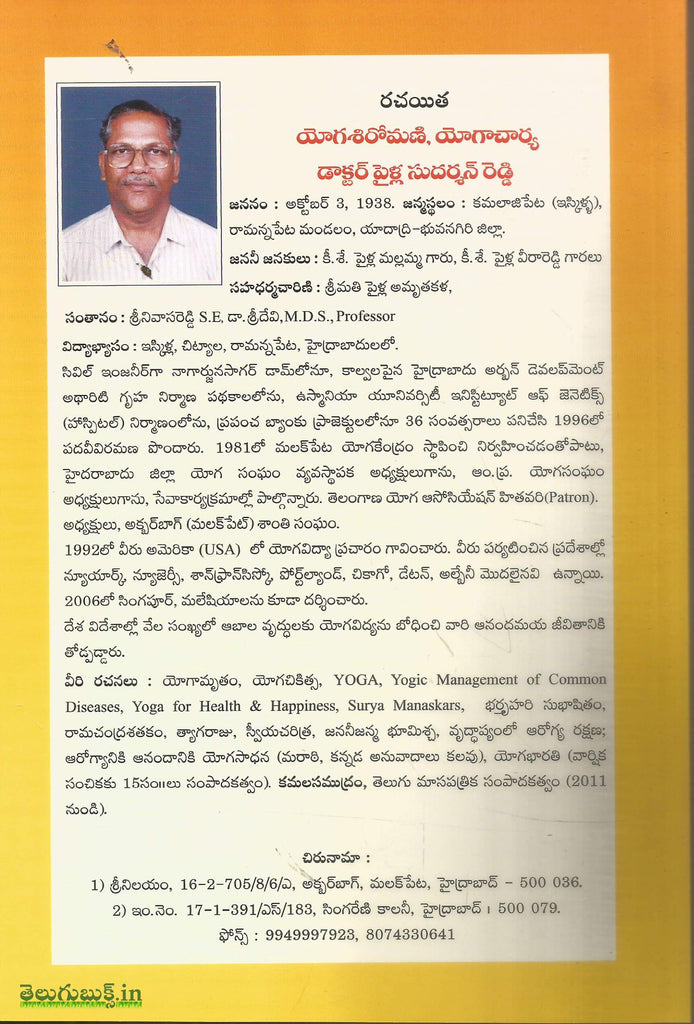 రచయిత
యోగశిరోమణి, యోగాచార్య
డాక్టర్ పైళ్ల సుదర్శన్ రెడ్డి
జననం : అక్టోబర్ 3, 1938. జన్మస్థలం : కమలాజిపేట (ఇస్కిళ్ళ),
రామన్నపేట మండలం, యాదాద్రి-భువనగిరి జిల్లా.
జననీ జనకులు : కీ.శే. పైళ్ల మల్లమ్మ గారు, కీ.శే. పైళ్ల వీరారెడ్డి గారలు
సహధర్మచారిణి : శ్రీమతి పైళ్ల అమృతకళ,
సంతానం : శ్రీనివాసరెడ్డి S.E, డా. శ్రీదేవి, M.D.S., Professor
విద్యాభ్యాసం : ఇస్కిళ్ల, చిట్యాల, రామన్నపేట, హైద్రాబాదులలో.
సివిల్ ఇంజనీర్‌గా నాగార్జునసాగర్ డామ్‌లోనూ, కాల్వలపైన హైద్రాబాదు అర్బన్ డెవలప్‌మెంట్
అథారిటి గృహ నిర్మాణ పథకాలలోను, ఉస్మానియా యూనివర్సిటీ ఇనిస్టిట్యూట్ ఆఫ్ జెనెటిక్స్
(హాస్పిటల్) నిర్మాణంలోను, ప్రపంచ బ్యాంకు ప్రాజెక్టులలోనూ 36 సంవత్సరాలు పనిచేసి 1996లో
పదవీవిరమణ పొందారు. 1981లో మలక్‌పేట యోగకేంద్రం స్థాపించి నిర్వహించడంతోపాటు,
హైదరాబాదు జిల్లా యోగ సంఘం వ్యవస్థాపక అధ్యక్షులుగాను, ఆం.ప్ర. యోగసంఘం
అధ్యక్షులుగాను, సేవాకార్యక్రమాల్లో పాల్గొన్నారు. తెలంగాణ యోగ ఆసోసియేషన్ హితవరి(Patron).
అధ్యక్షులు, అక్బర్‌బాగ్ (మలక్‌పేట్) శాంతి సంఘం.
1992లో వీరు అమెరికా (USA) లో యోగవిద్యా ప్రచారం గావించారు. వీరు పర్యటించిన ప్రదేశాల్లో
న్యూయార్క్, న్యూజెర్సీ, శాన్‌ఫ్రాన్‌సిస్కో, పోర్ట్‌ల్యాండ్, చికాగో, డేటన్, అల్బేనీ మొదలైనవి ఉన్నాయి.
2006లో సింగపూర్, మలేషియాలను కూడా దర్శించారు.
దేశ విదేశాల్లో వేల సంఖ్యలో ఆబాల వృద్ధులకు యోగవిద్యను బోధించి వారి ఆనందమయ జీవితానికి
తోడ్పడ్డారు.
వీరి రచనలు : యోగామృతం, యోగచికిత్స, YOGA, Yogic Management of Common
Diseases, Yoga for Health & Happiness, Surya Manaskars, భర్తృహరి సుభాషితం,
రామచంద్రశతకం, త్యాగరాజు, స్వీయచరిత్ర, జననీజన్మ భూమిశ్చ, వృద్ధాప్యంలో ఆరోగ్య రక్షణ;
ఆరోగ్యానికి ఆనందానికి యోగసాధన (మరాఠి, కన్నడ అనువాదాలు కలవు), యోగభారతి (వార్షిక
సంచికకు 15సం॥లు సంపాదకత్వం). కమలసముద్రం, తెలుగు మాసపత్రిక సంపాదకత్వం (2011
నుండి).
చిరునామా :
1) శ్రీనిలయం, 16-2-705/8/6/ఏ, అక్బర్‌బాగ్, మలక్‌పేట, హైద్రాబాద్ - 500 036.
2) ఇం.నెం. 17-1-391/ఎస్/183, సింగరేణి కాలనీ, హైద్రాబాద్ : 500 079.
ఫోన్స్ : 9949997923, 8074330641
తెలుగుబుక్స్.in